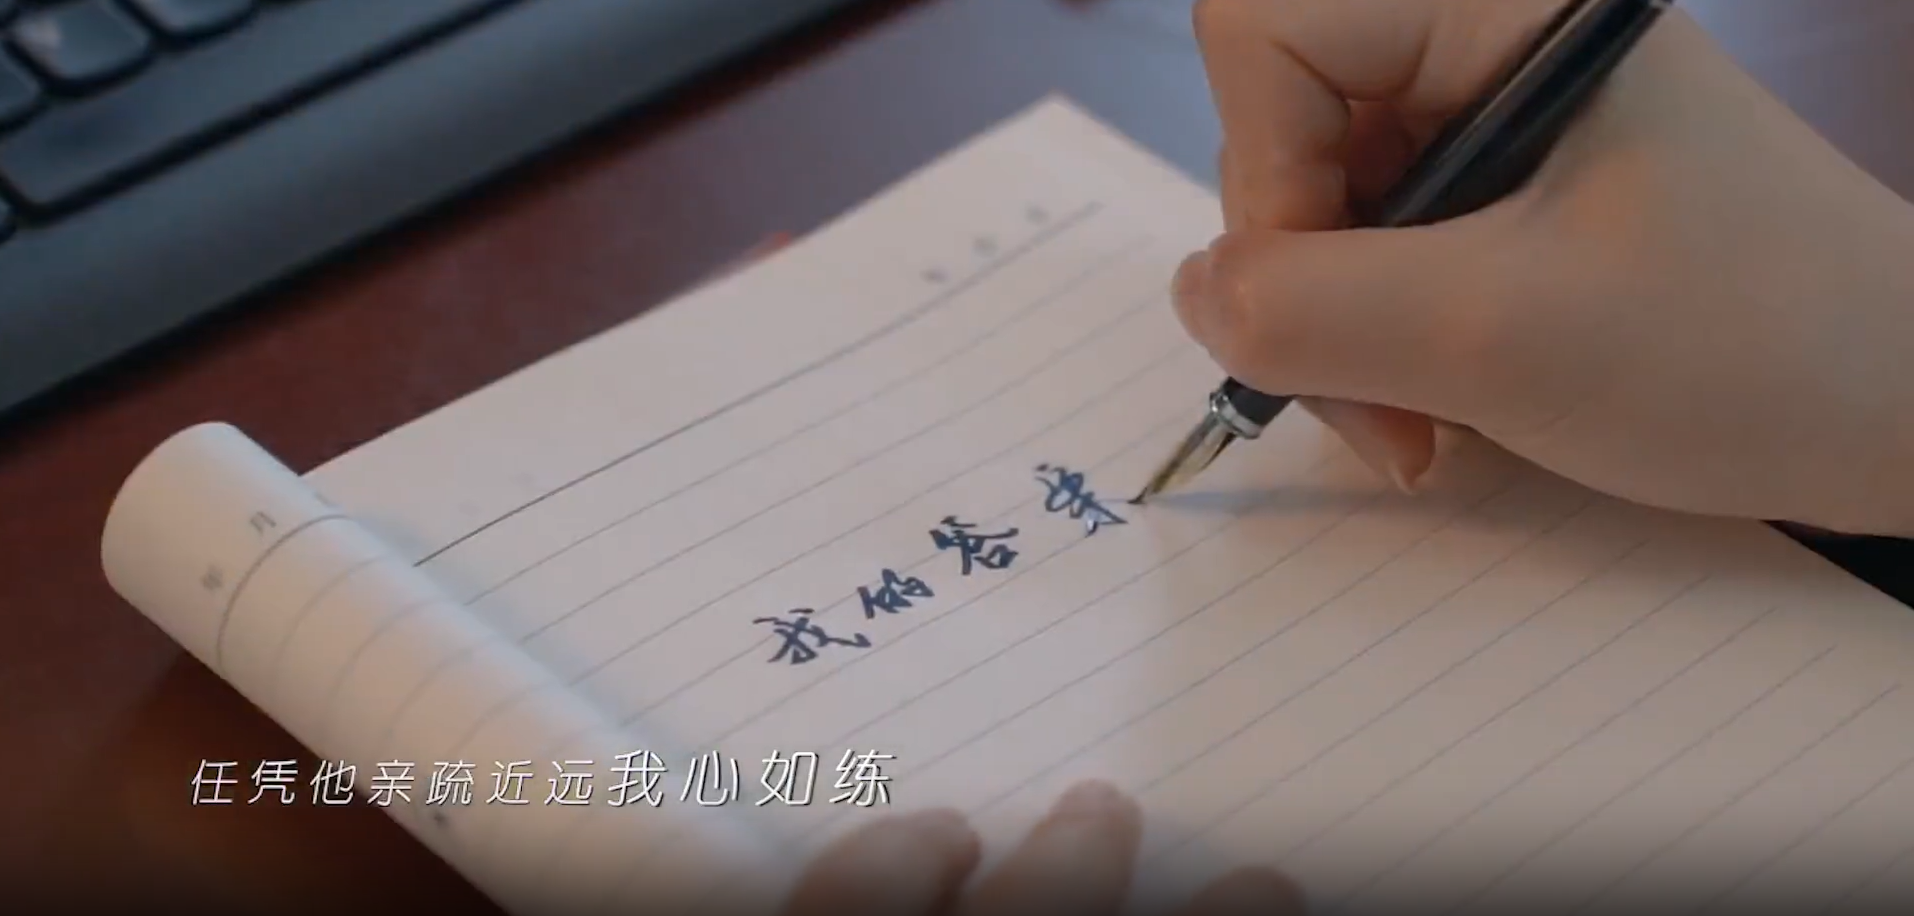 月
我的答案
任凭他亲疏近远我心如练